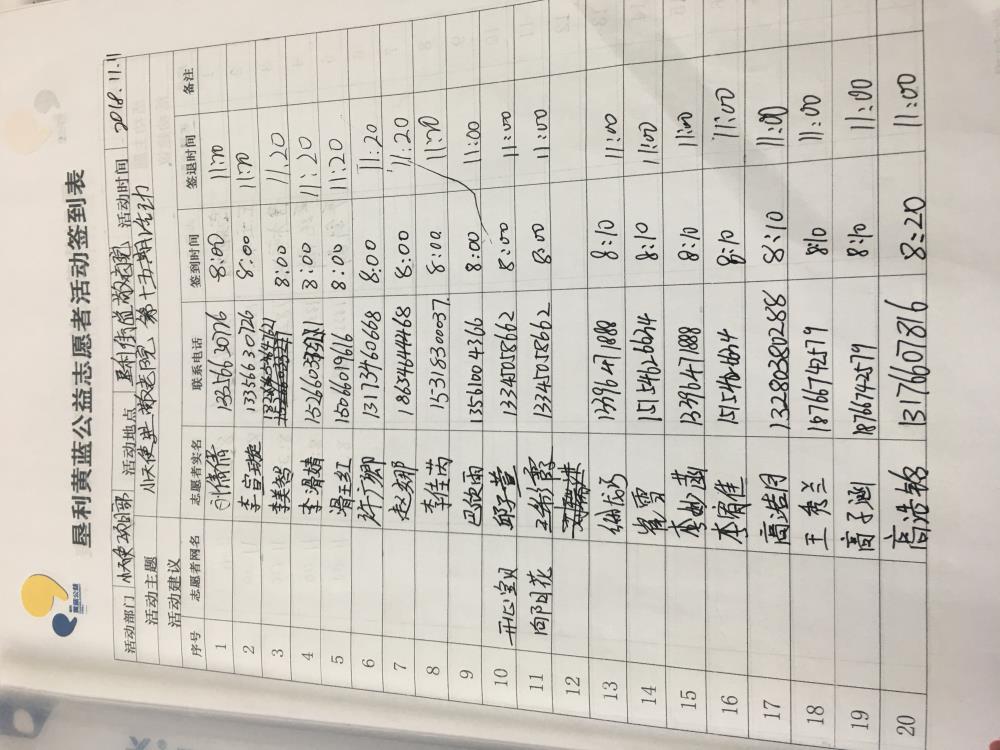 黄蓝公益
垦利黄蓝公益志愿者活动签到表
活动部门 小天使 活动地点 垦利街道敬老院 活动时间 2018.11.11
活动主题 小天使 敬老院 第十五期活动
活动建议
序号 志愿者网名 志愿者实名 联系电话 签到时间 签退时间 备注
1 刘倩倩 13356630726 8:00 11:20
2 李宣璇 13356630726 8:00 11:20
3 李美琴 8:00 11:20
4 李滑婧 8:00 11:20
5 滑主红 15066019616 8:00 11:20
6 许广卿 13173460668 8:00 11:20
7 赵娜 18654644468 8:00 11:20
8 李佳芮 15318300037. 8:00 11:20
9 巴欣雨 13561004366 8:00 11:00
10 开心宝贝 邱子萱 13345058662 8:00 11:00
11 向阳花 13345058662 8:00 11:00
12
13 13396471888 8:10 11:00
14 崔雪 15154626214 8:10 11:00
15 13396471888 8:10 11:00
16 8:10 11:00
17 高浩月 8:10 11:00
18 王秀兰 18766742579 8:10 11:00
19 高子涵 8:10 11:00
20 高浩铭 13176607816 8:20 11:00